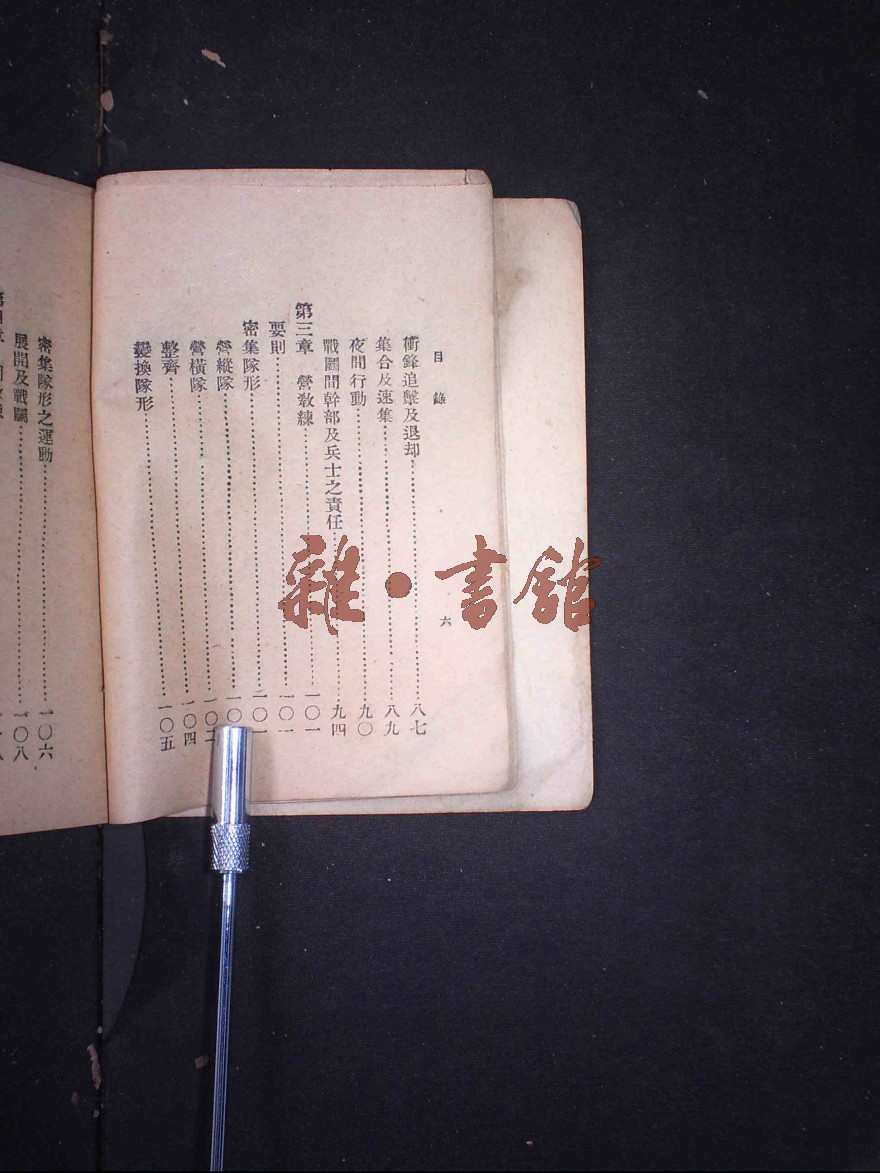 目錄
六
衝鋒追擊及退却……八七
集合及速集……八九
夜間行動……九〇
戰鬭間幹部及兵士之責任……九四
第三章　營敎練……一〇一
要則……一〇一
密集隊形……一〇一
營縱隊……一〇
營橫隊……一〇二
整齊……一〇四
變換隊形……一〇五
密集隊形之運動……一〇六
展開及戰鬭……一〇八
雜·書舘